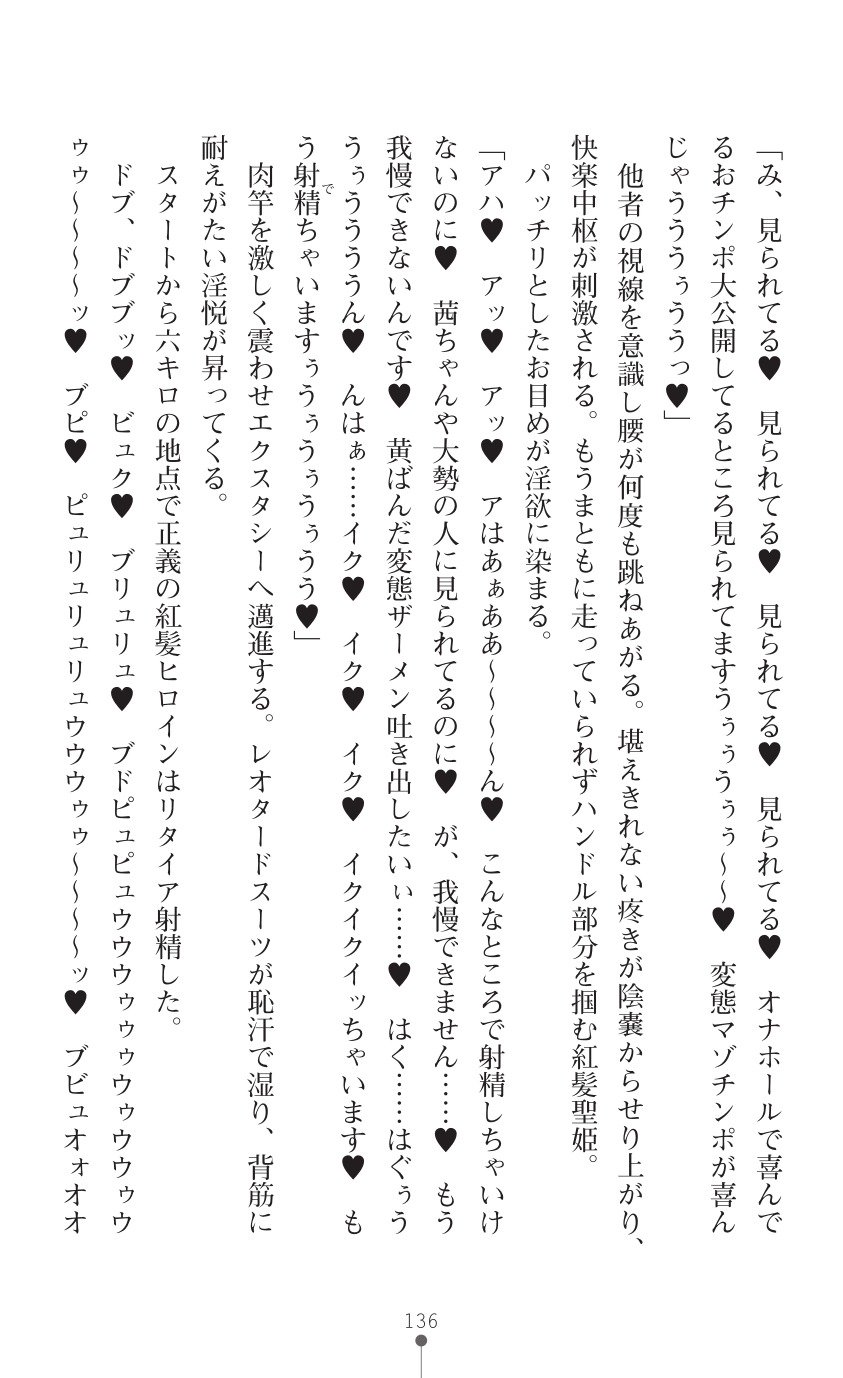 「み、見られてる♥　見られてる♥　見られてる♥　見られてる♥　オナホールで喜んで
るおチンポ大公開してるところ見られてますうぅぅうぅぅ～～♥　変態マゾチンポが喜ん
じゃうううぅううっ♥」
　他者の視線を意識し腰が何度も跳ねあがる。堪えきれない疼きが陰嚢からせり上がり、
快楽中枢が刺激される。もうまともに走っていられずハンドル部分を掴む紅髪聖姫。
　パッチリとしたお目めが淫欲に染まる。
「アハ♥　アッ♥　アッ♥　アはあぁああ～～～～ん♥　こんなところで射精しちゃいけ
ないのに♥　茜ちゃんや大勢の人に見られてるのに♥　が、我慢できません……♥　もう
我慢できないんです♥　黄ばんだ変態ザーメン吐き出したいぃ……♥　はく……はぐぅう
うぅうううん♥　んはぁ……イク♥　イク♥　イク♥　イクイクイッちゃいます♥　も
う射精ちゃいますぅうぅうぅうぅうう♥」
で
　肉竿を激しく震わせエクスタシーへ邁進する。レオタードスーツが恥汗で湿り、背筋に
耐えがたい淫悦が昇ってくる。
　スタートから六キロの地点で正義の紅髪ヒロインはリタイア射精した。
　ドブ、ドブブッ♥　ビュク♥　ブリュリュ♥　ブドピュピュウウウゥゥゥウゥウウゥウ
ゥゥ～～～～ッ♥　ブピ♥　ピュリュリュリュウウウゥゥ～～～～ッ♥　ブビュオォオオ
136